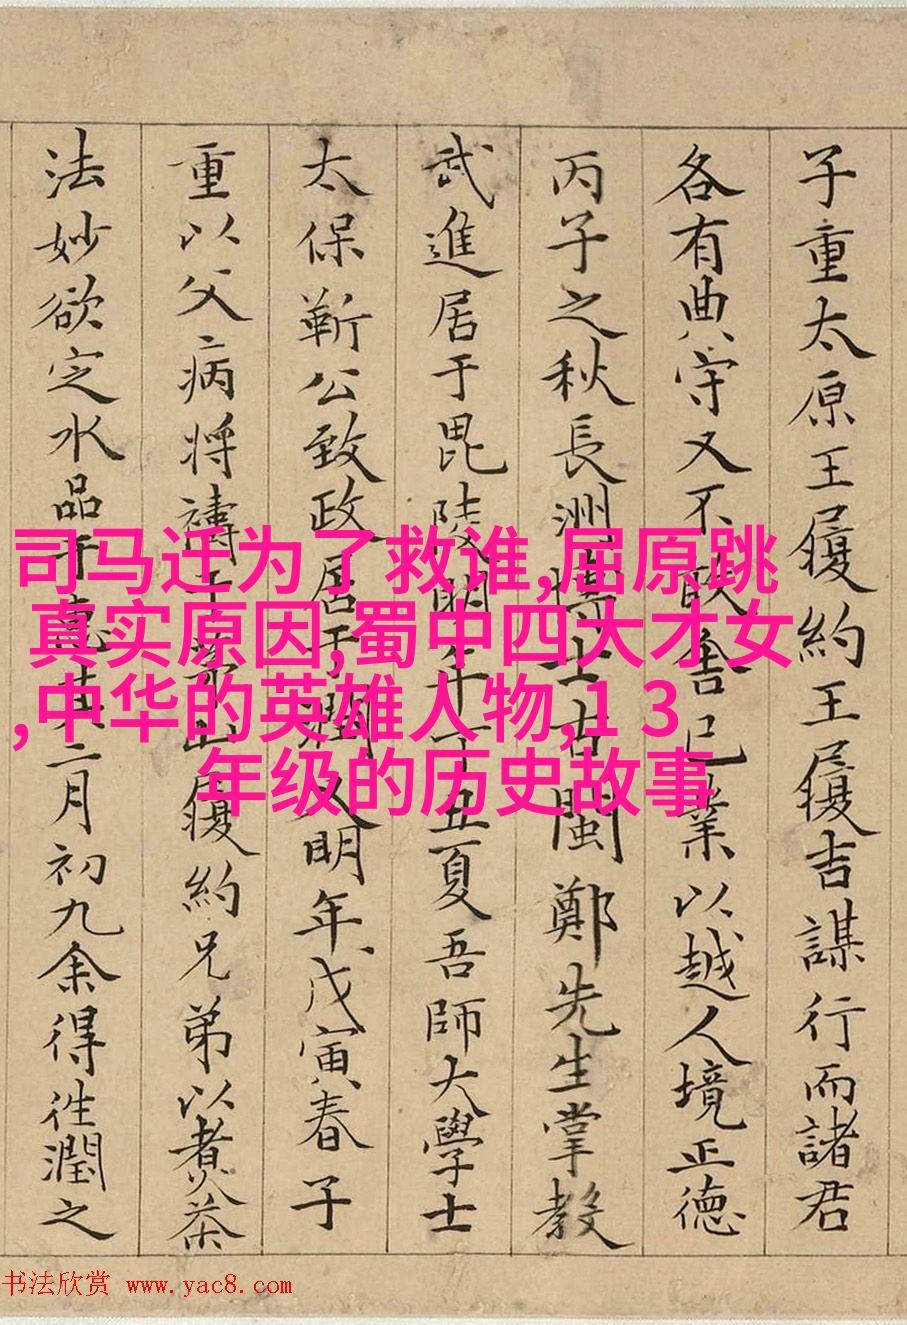 子重太原王履約王履吉謀行而諸君
各有典守又不舍已業以越人境正德
丙子之秋長洲博士古閩鄭先生掌教
武進居于毘陵明年丁丑夏吾師大學士
太保靳公致政居于潤又明年戊寅春子
重以父病將禱于茅山履約兄弟以煮茶
法妙欲定水品于惠其二月初九余得徃潤之
司马迁为了救谁,屈原跳
真实原因,蜀中四大才女
,中华的英雄人物,1 3
年级的历史故事
书法欣赏 www.yac8.com